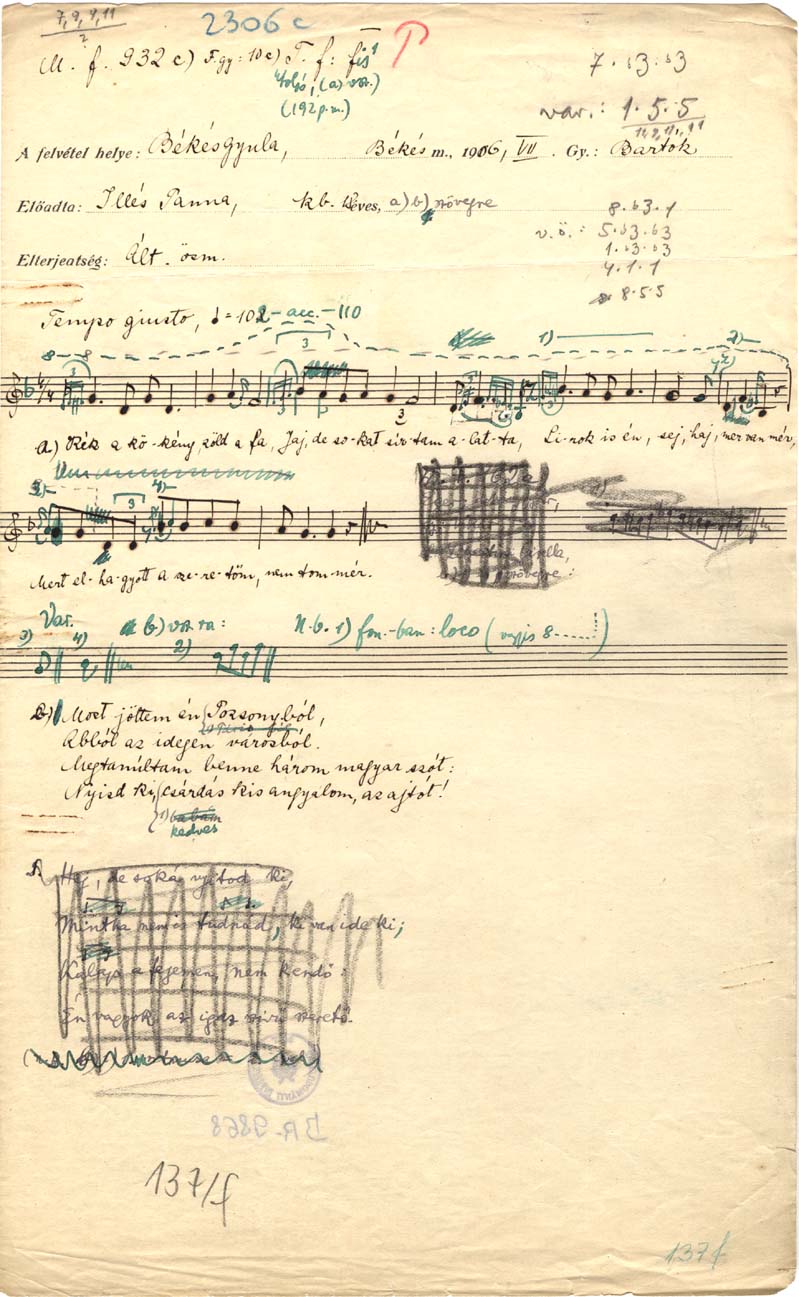 7, 9, 9, 11
2
2306 c
M. f. 932 c) F. gy: 10 c) T. f: fis¹
utolsó, (a) vsz.)
(192 p.m.)
7. b3. b3
var.: 1. 5. 5
11, 9, 11, 11
A felvétel helye: Békésgyula, Békés m., 1906, VII. Gy.: Bartók
Előadta: Illés Panna, kb. éves, a) b) szövegre
8. b3. 1
v. ö.: 5. b3. b3
Elterjedtség: Ált. ösm.
1. b3. b3
4. 1. 1
8. 5. 5
Tempo giusto, ♩= 102 – acc. – 110
8 – – 8
3
1)
2)
a) Kék a kökény, zöld a fa, Jaj, de so-kat sír-tam a-lat-ta, Lí-rok is én, sej, haj, mer van mér,
3)
3
4)
Mert el-ha-gyott a sze-re-tőm, nem tom mér.
Var. b) vsz. ra: N.b. 1) fon.-ban: loco (végig 8......)
3) 4) 2)
b) Most jöttem én Pozsonyból,
Abból az idegen városból.
Megtanúltam benne három magyar szót:
Nyisd ki, csárdás kis angyalom, az ajtót!
babám
kedves
Hej, de soká nyitod ki,
Mintha nem is tudnád, ki van ide ki;
Kalap a fejemen, nem kendő:
Én vagyok az igaz szívű szerető.
BA-9868
137/f
137 f